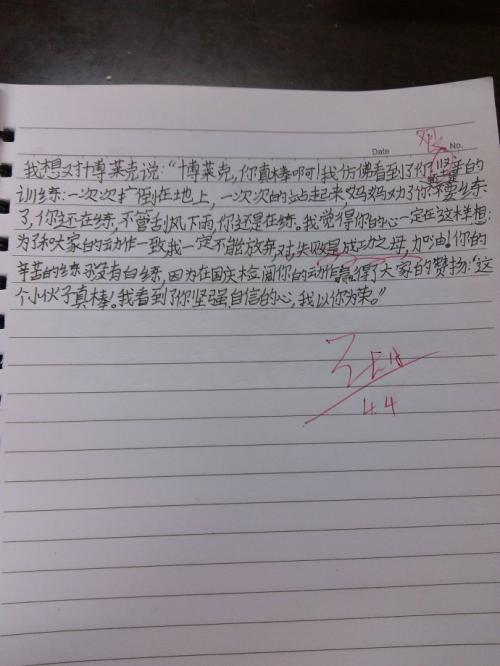 Date No.
我想对博莱克说:“博莱克,你真棒啊!我仿佛看到了你艰苦的
训练:一次次扩倒在地上,一次次的站起来,妈妈劝了你不要练
了,你还在练,不管刮风下雨,你还是在练。我觉得你的心一定在这样想:
为了和大家的动作一致,我一定不能放弃,对,失败是成功之母,加油!你的
辛苦的练习没有白练,因为在国庆检阅你的动作赢得了大家的赞扬:“这
个小伙子真棒!我看到了你坚强、自信的心,我以你为荣。”
4.4